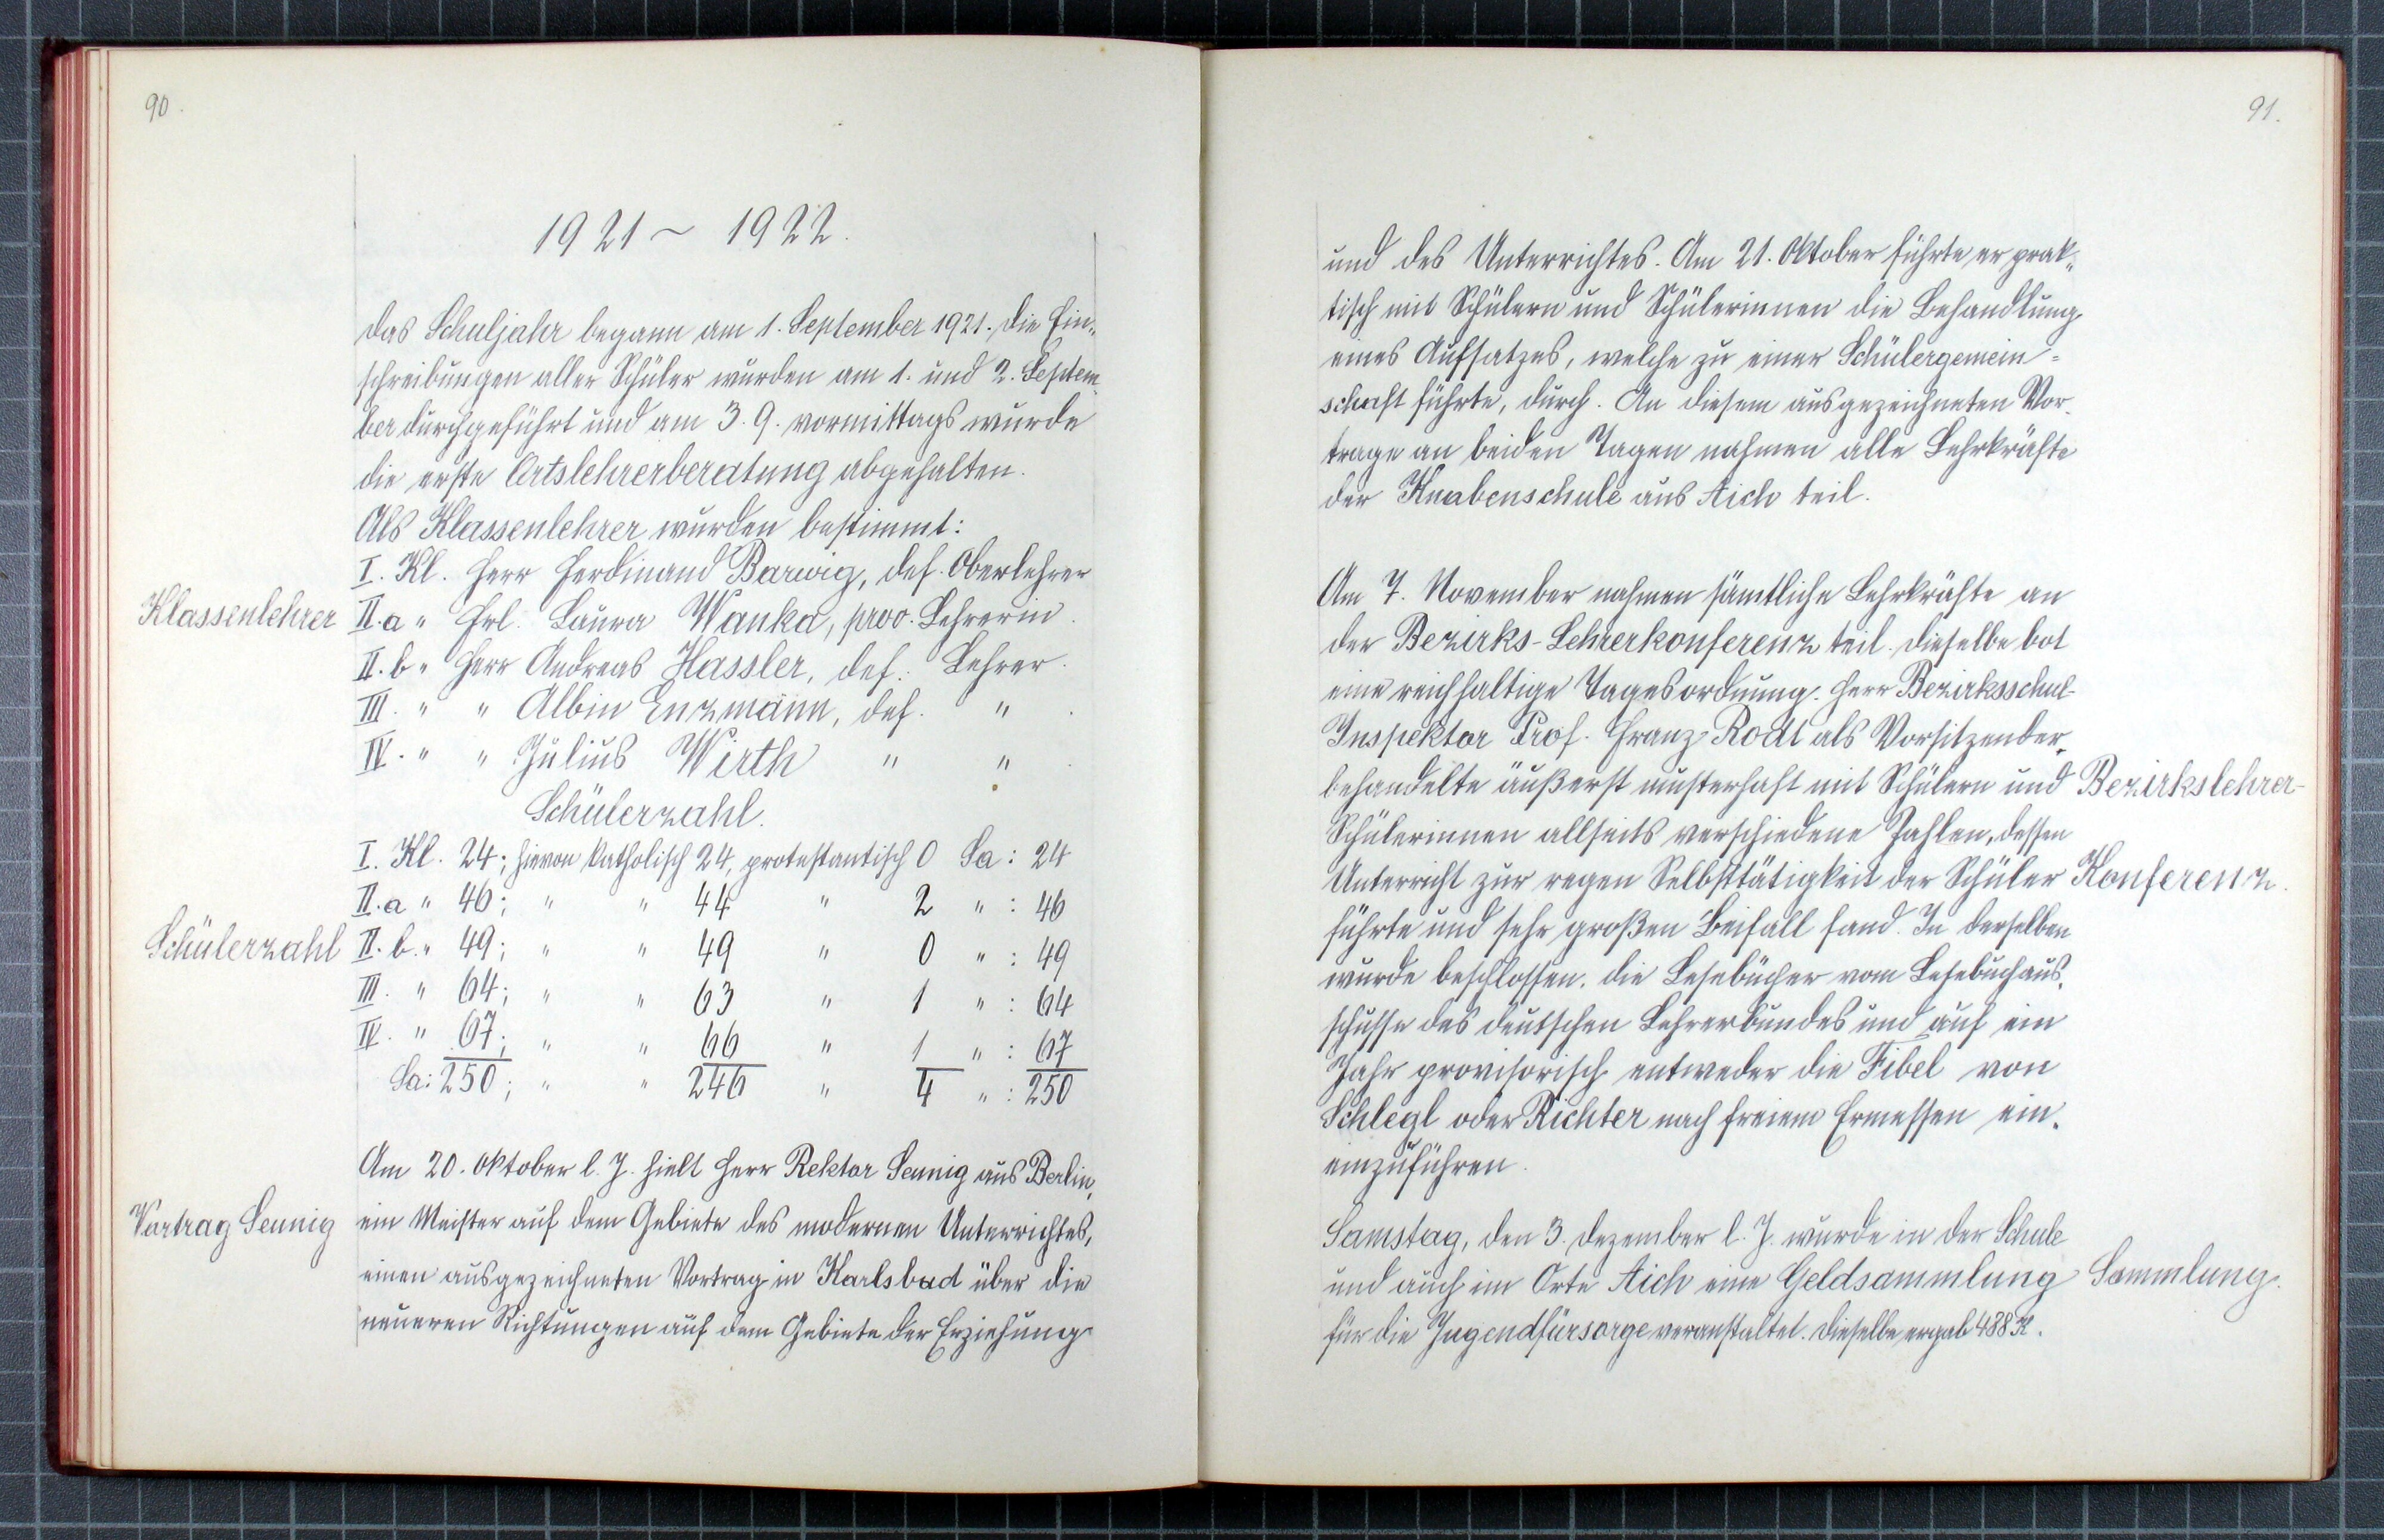 90.
1921 ~ 1922.
Das Schuljahr begann am 1. September 1921. Die Ein„
schreibungen aller Schüler wurden am 1. und 2. Septem„
ber durchgeführt und am 3. 9. vormittags wurde
die erste Ortslehrerberatung abgehalten.
Als Klassenlehrer wurden bestimmt:
I. Kl. Herr Ferdinand Barwig, def. Oberlehrer
Klassenlehrer II. a " Frl. Laura Wanka, prov. Lehrerin.
II. b " Herr Andreas Hassler, def. Lehrer.
III. " " Albin Enzmann, def. " .
IV. " " Julius Wirth " " .
Schülerzahl.
I. Kl. 24; hievon katholisch 24, protestantisch 0 Sa: 24
II. a " 46; " " 44 " 2 " : 46
Schülerzahl II. b. " 49; " " 49 " 0 " : 49
III. " 64; " " 63 " 1 " : 64
IV. " 67; " " 66 " 1 " : 67
Sa: 250; " " 246 " 4 " : 250
Am 20. Oktober l. J. hielt Herr Rektor Seinig aus Berlin,
Vortrag Seinig ein Meister auf dem Gebiete des modernen Unterrichtes,
einen ausgezeichneten Vortrag in Karlsbad über die
neueren Richtungen auf dem Gebiete der Erziehung
91.
und des Unterrichtes. Am 21. Oktober führte er prak„
tisch mit Schülern und Schülerinnen die Behandlung
eines Aufsatzes, welche zu einer Schülergemein=
schaft führte, durch. An diesem ausgezeichneten Vor-
trage an beiden Tagen nahmen alle Lehrkräfte
der Knabenschule aus Aich teil.
Am 7. November nahmen sämtliche Lehrkräfte an
der Bezirks-Lehrerkonferenz teil. Dieselbe bot
eine reichhaltige Tagesordnung. Herr Bezirksschul-
Inspektor Prof. Franz Rödl als Vorsitzender
behandelte äußerst musterhaft mit Schülern und Bezirkslehrer-
Schülerinnen allseits verschiedene Zahlen, dessen
Unterricht zur regen Selbsttätigkeit der Schüler Konferenz.
führte und sehr großen Beifall fand. In derselben
wurde beschlossen, die Lesebücher vom Lesebuchaus„
schusse des deutschen Lehrerbundes und auf ein
Jahr provisorisch entweder die Fibel von
Schlegl oder Richter nach freiem Ermessen ein„
einzuführen.
Samstag, den 3. Dezember l. J. wurde in der Schule
und auch im Orte Aich eine Geldsammlung Sammlung.
für die Jugendfürsorge veranstaltet. Dieselbe ergab 488 K.